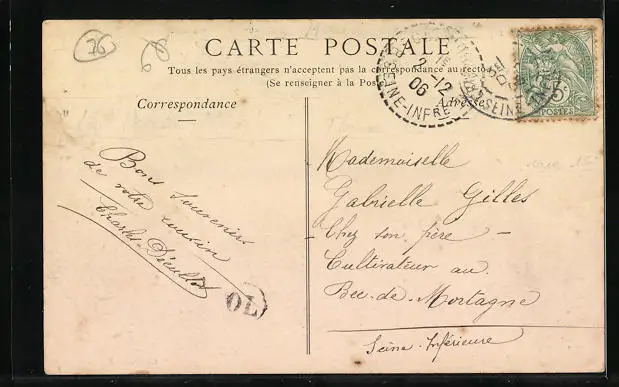 76
CARTE POSTALE
Tous les pays étrangers n'acceptent pas la correspondance au recto
(Se renseigner à la Pos
Correspondance
Adresse
2-12
06
SEINE-INFRE
SEINE-INFRE
5c
POSTES
Bons souvenirs
de votre cousin
Charles
OL
Mademoiselle
Gabrielle Gilles
Chez son père -
Cultivateur au
Bec-de-Mortagne
Seine-Inférieure